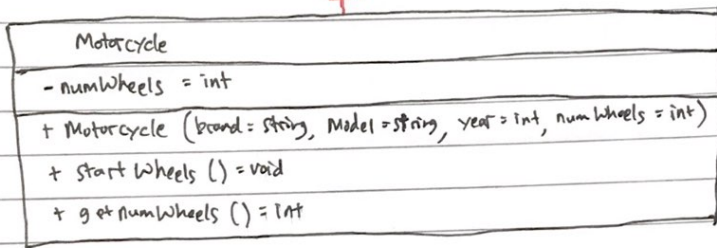 Motorcycle
- numWheels = int
+ Motorcycle (brand = string, Model = string, year = int, numWheels = int)
+ start Wheels () = void
+ get numWheels () = int